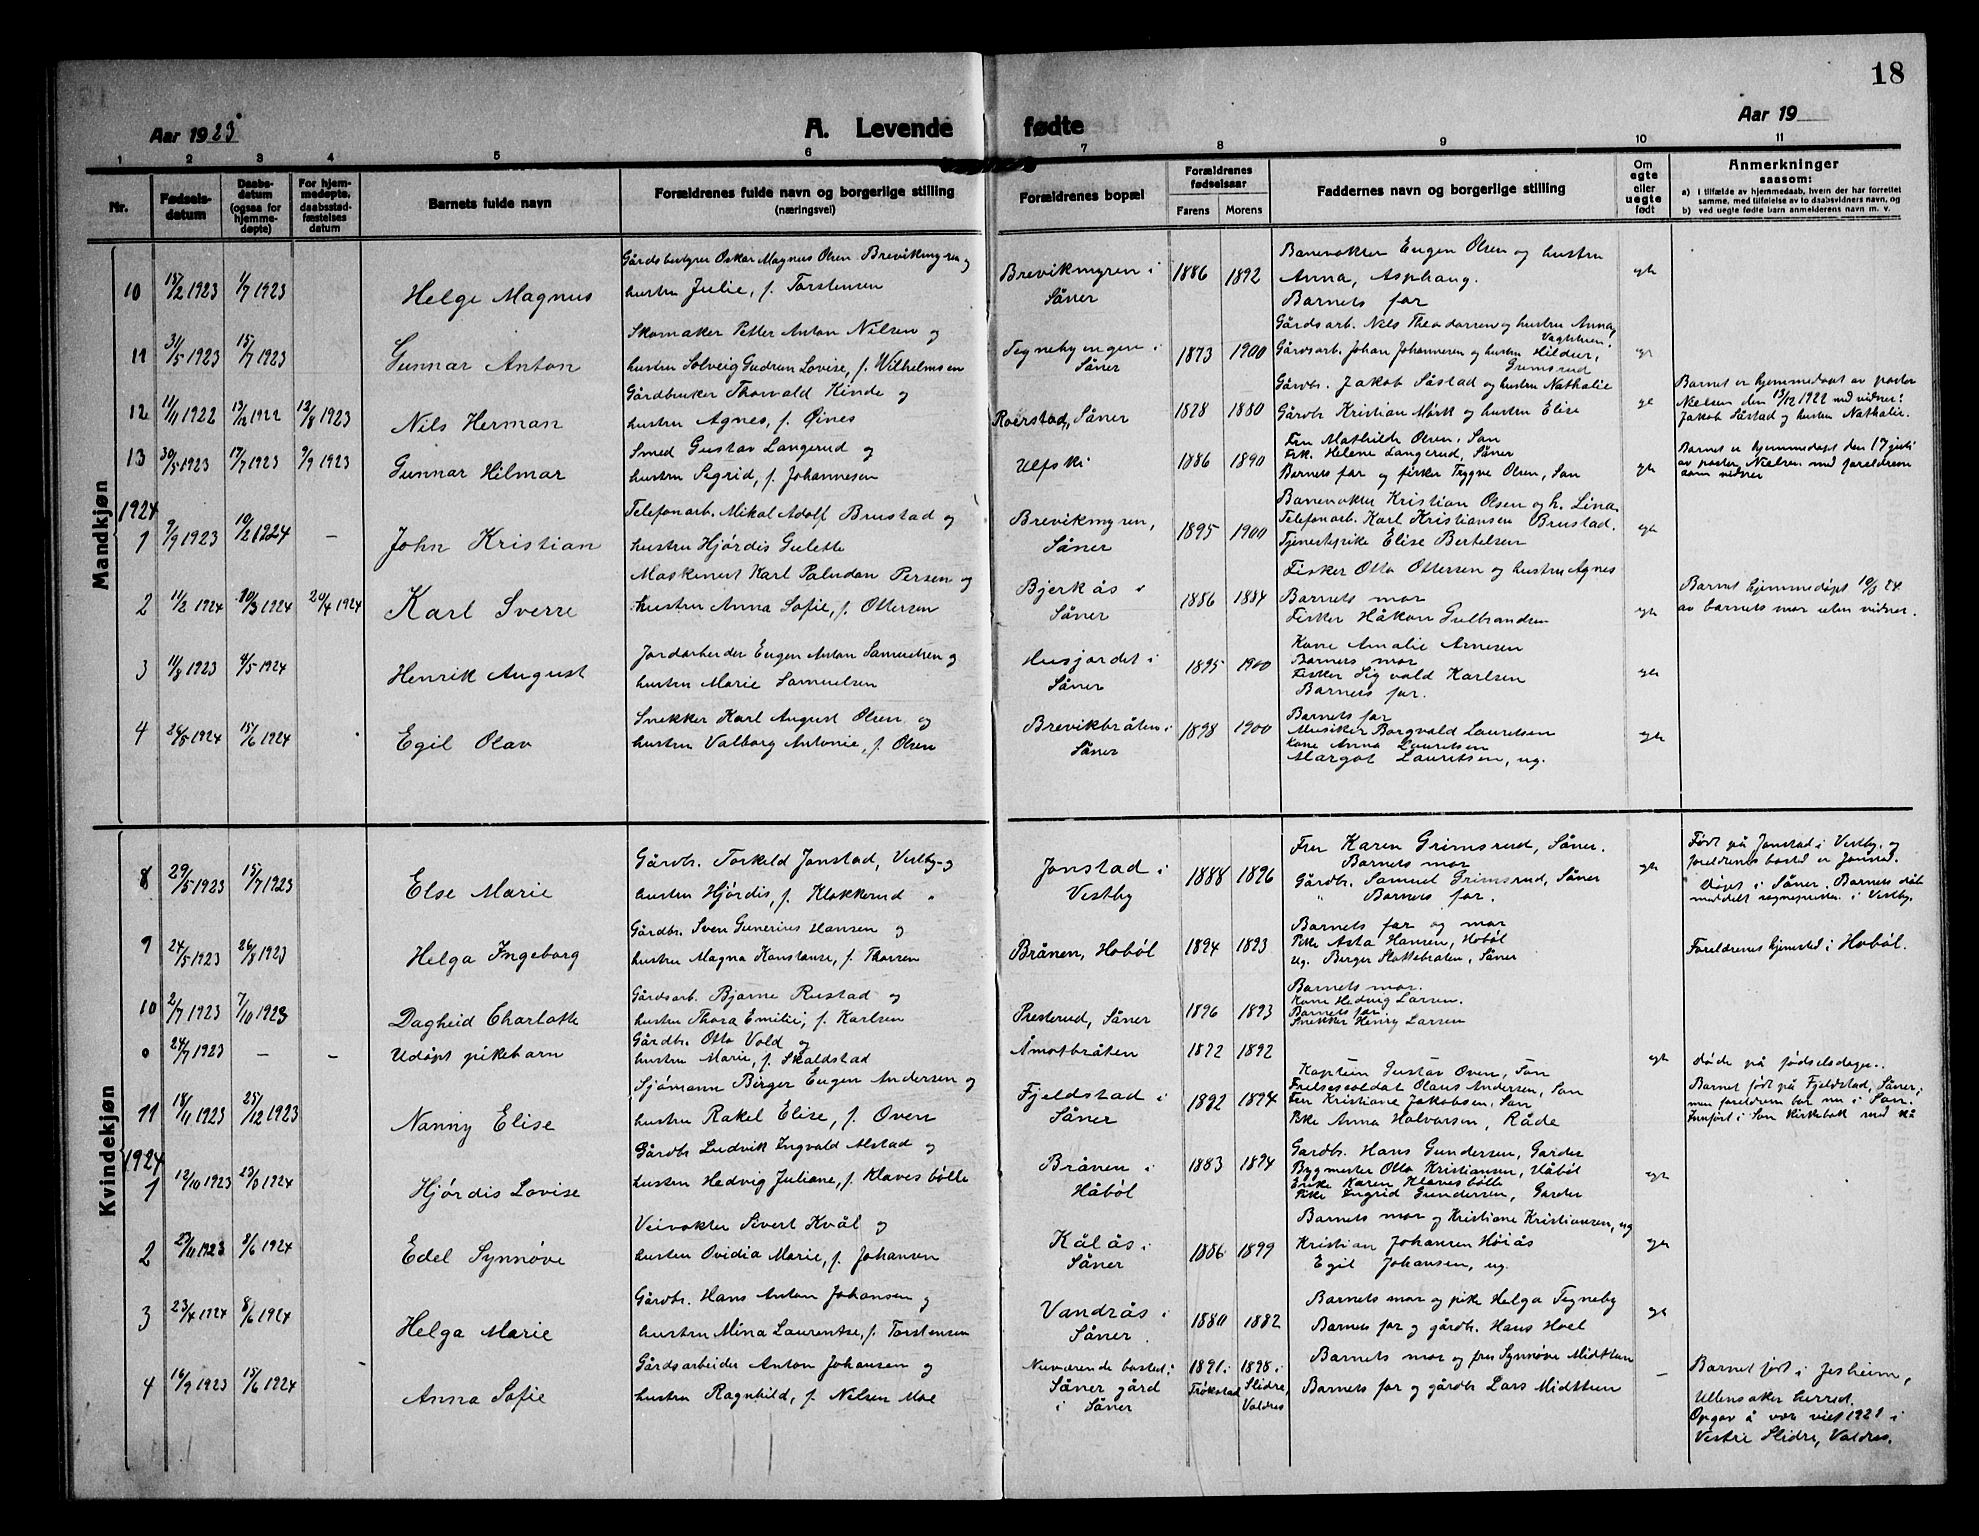 18
Aar 1923
A. Levende fødte
Aar 19
1 2 3 4 5 6 7 8 9 10 11
Nr.
Fødsels-
datum
Daabs-
datum
(ogsaa for
hjemme-
døpte)
For hjem-
medøpte,
daabsstad-
fæstelses
datum
Barnets fulde navn
Forældrenes fulde navn og borgerlige stilling
(næringsvei)
Forældrenes bopæl
Forældrenes
fødselsaar
Farens Morens
Faddernes navn og borgerlige stilling
Om
egte
eller
uegte
født
Anmerkninger
saasom:
a) i tilfælde av hjemmedaab, hvem der har forrettet
samme, med tilføielse av to daabsvidners navn, og
b) ved uegte fødte barn anmelderens navn m. v.
Mandkjøn
10 15/2 1923 1/7 1923 Helge Magnus
Gårdsbestyrer Oskar Magnus Olsen Brevikmyren og
hustru Julie, f. Torstensen
Brevikmyren i
Såner
1886 1892
Banevokter Eugen Olsen og hustru
Anna, Asphaug.
Barnets far
egte
11 31/5 1923 15/7 1923 Gunnar Anton
Skomaker Petter Anton Nilsen og
hustru Solveig Gudrun Lovise, f. Wilhelmsen
Tegnebyengen i
Såner
1873 1900
Gårdsarb. Nils Theodorsen og hustru Anna,
Gårdsarb. Johan Johannesen og hustru Hildur,
Grimsrud
12 11/11 1922 13/12 1922 12/8 1923 Nils Herman
Gårdbruker Thorvald Hinde og
hustru Agnes, f. Øines
Roerstad, Såner
1878 1880
Gårdbr. Jakob Såstad og hustru Nathalie
Gårdbr. Kristian Mørk og hustru Elise
Barnet er hjemmedøpt av pastor
Nielsen den 13/12 1922 med vidner:
Jakob Såstad og hustru Nathalie.
13 30/5 1923 17/7 1923 9/9 1923 Gunnar Hilmar
Smed Gustav Langerud og
hustru Sigrid, f. Johannesen
Ulfski
1886 1890
Fru Mathilde Olsen, Son
Frk. Helene Langerud, Såner
Barnets far og fisker Trygve Olsen, Son
egte
Barnet er hjemmedøpt den 17 juli
av pastor Nielsen med foreldrene
som vidner
1924
1 9/9 1923 10/2 1924 – John Kristian
Telefonarb. Mikal Adolf Brustad og
hustru Hjørdis Gulette
Brevikmyren,
Såner
1895 1900
Banevokter Kristian Olsen og h. Lina
Telefonarb. Karl Kristiansen Brustad.
Tjenestepike Elise Bertelsen
egte
2 11/2 1924 10/3 1924 20/4 1924 Karl Sverre
Maskinist Karl Paludan Persen og
hustru Anna Sofie, f. Ottersen
Bjerkås i
Såner
1886 1884
Fisker Otto Ottersen og hustru Agnes
Barnets mor
Fisker Håkon Gulbrandsen
egte
Barnet hjemmedøpt 10/3 24
av barnets mor uten vidner.
3 11/8 1923 4/5 1924 Henrik August
Jordarbeider Eugen Anton Samuelsen og
hustru Marie Samuelsen
Husjordet i
Såner
1895 1900
Kone Amalie Arnesen
Barnets mor
Fisker Sigvald Karlsen
Barnets far.
egte
4 26/5 1924 15/6 1924 Egil Olav
Snekker Karl August Olsen og
hustru Valborg Antonie, f. Olsen
Brevikbråten i
Såner
1898 1900
Barnets far
Musiker Borgvald Lauretsen
Kone Anna Lauretsen
Margot Lauretsen, ug.
egte
Kvindekjøn
8 29/5 1923 15/7 1923 Else Marie
Gårdbr. Torkild Jonstad, Vestby- og
hustru Hjørdis, f. Klokkerud "
Jonstad i
Vestby
1888 1896
Fru Karen Grimsrud, Såner.
Barnets mor
Gårdbr. Samuel Grimsrud, Såner
" Barnets far.
egte
Født på Jonstad i Vestby, og
foreldrenes bosted er Jonstad.
Døpt i Såner. Barnets dåb
meddelt sognepresten i Vestby.
9 24/5 1923 26/8 1923 Helga Ingeborg
Gårdbr. Sven Gunerius Hansen og
hustru Magna Konstanse, f. Thorsen
Brånen, Hobøl
1894 1893
Barnets far og mor
Pike Asta Hansen, Hobøl
Ug. Berger Slottebråten, Såner
Foreldrenes hjemsted i Hobøl.
10 2/7 1923 7/10 1923 Dagheid Charlotte
Gårdsarb. Bjarne Rustad og
hustru Thora Emilie, f. Karlsen
Presterud, Såner
1896 1893
Barnets mor.
Kone Hedvig Larsen.
Barnets far.
Snekker Henry Larsen
0 24/7 1923 – – Udøpt pikebarn
Gårdbr. Otto Vold og
hustru Marie, f. Skaldstad
Åmotbråten
1872 1892
egte
døde på fødselsdagen.
11 18/11 1923 25/12 1923 Nanny Elise
Sjømann Birger Eugen Andersen og
hustru Rakel Elise, f. Oven
Fjeldstad i
Såner
1892 1894
Kaptein Gustav Oven, Son
Frelsessoldat Olaus Andersen, Son
Fru Kristiane Jakobsen, Son
Pike Anna Halvorsen, Råde
Barnet født på Fjeldstad, Såner;
men foreldrene bor nu i Son.
Innført i Son kirkebok med
1924
1 12/10 1923 23/3 1924 Hjørdis Lovise
Gårdbr. Ludvik Ingvald Alstad og
hustru Hedvig Juliane, f. Klavesbølle
Brånen i
Håbøl
1883 1894
Gardbr. Hans Gundersen, Garder
Bygmester Otto Kristiansen, Håbøl
Enke Karen Klavesbølle
Pike Ingrid Gundersen, Garder
egte
2 23/11 1923 8/6 1924 Edel Synnøve
Veivokter Sivert Kvål og
hustru Ovidia Marie, f. Johansen
Kålås i
Såner
1886 1899
Barnets mor og Kristiane Kristiansen, ug
Kristian Johansen Høiås
Egil Johansen, ug.
egte
3 23/4 1924 8/6 1924 Helga Marie
Gårdbr. Hans Anton Johansen og
hustru Mina Laurentse, f. Torstensen
Vandrås i
Såner
1880 1882
Barnets mor og pike Helga Tegneby
Barnets far og gårdbr. Hans Hoel
4 16/9 1923 15/6 1924 Anna Sofie
Gårdsarbeider Anton Johansen og
hustru Ragnhild, f. Nilsen Moe
Nuværende bosted:
Såner gård
i Såner
1891 i
Trøkstad
1898 i
Slidre,
Valdres
Barnets mor og fru Synnøve Midttun
Barnets far og gårdbr. Lars Midttun
–
Barnet født i Jesheim,
Ullensaker herred.
Opgav å være viet 1921 i
Vestre Slidre, Valdres.